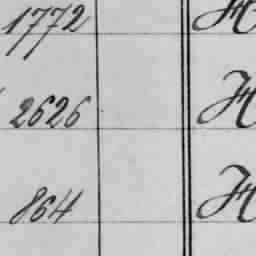 1772 H
2626 H
864 H